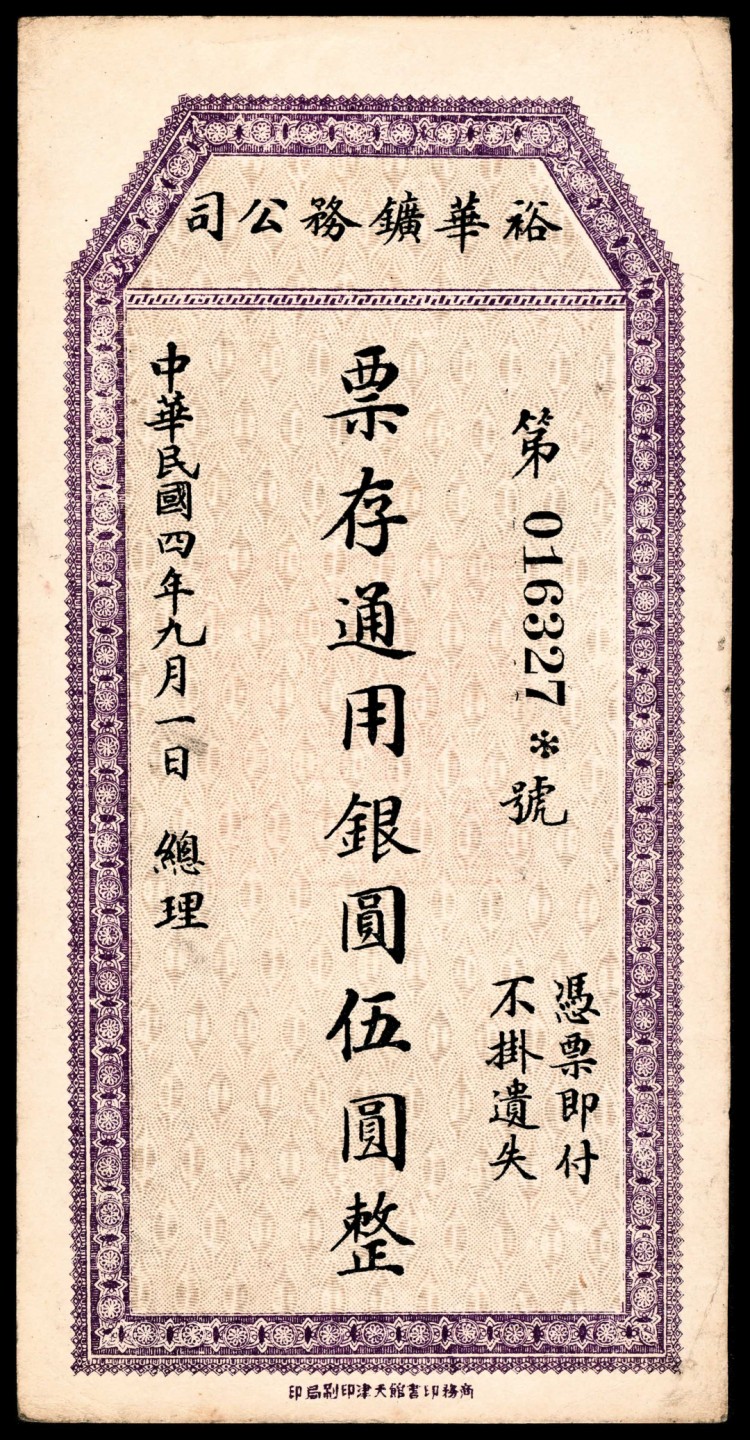 裕華鑛務公司
第016327*號
憑票即付
不掛遺失
票存通用銀圓伍圓整
中華民國四年九月一日 總理
商務印書館天津印刷局印